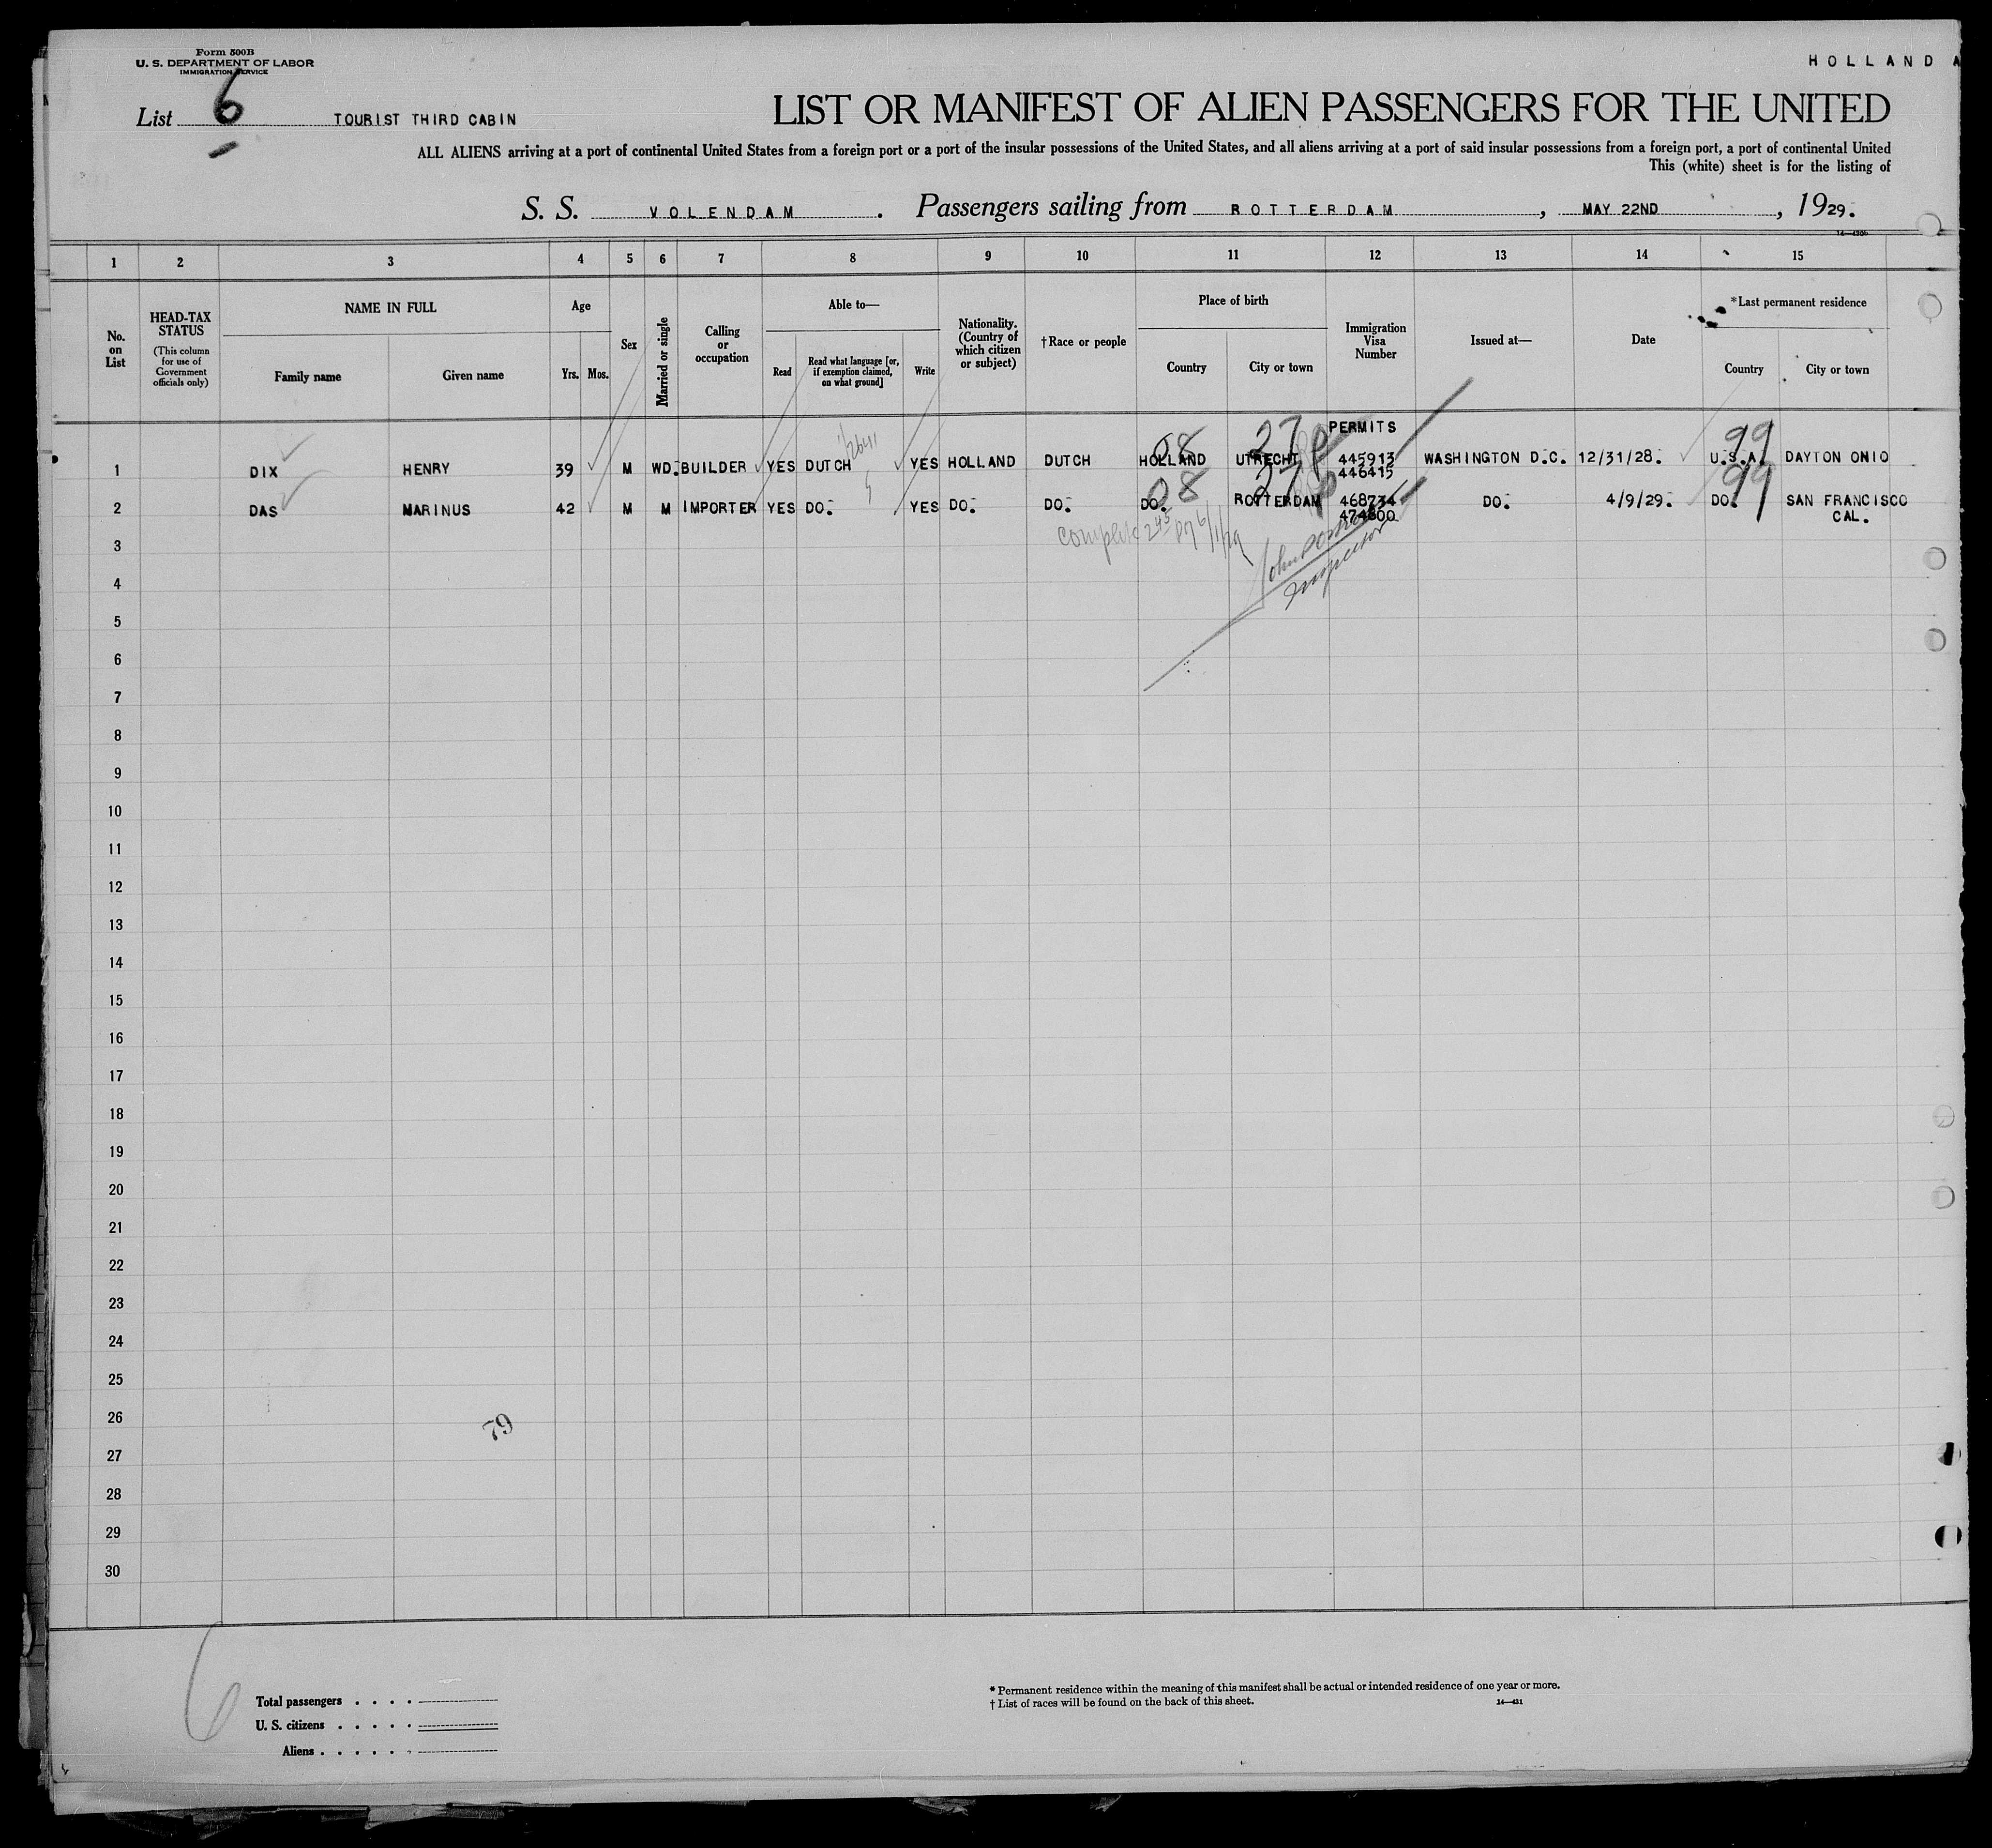 Form 500B
U. S. DEPARTMENT OF LABOR
IMMIGRATION SERVICE
HOLLAND A
List 6 TOURIST THIRD CABIN
LIST OR MANIFEST OF ALIEN PASSENGERS FOR THE UNITED
ALL ALIENS arriving at a port of continental United States from a foreign port or a port of the insular possessions of the United States, and all aliens arriving at a port of said insular possessions from a foreign port, a port of continental United
This (white) sheet is for the listing of
S. S. VOLENDAM. Passengers sailing from ROTTERDAM, MAY 22ND, 1929.
1 2 3 4 5 6 7 8 9 10 11 12 13 14 15
No. on List
HEAD-TAX STATUS
(This column for use of Government officials only)
NAME IN FULL
Family name Given name
Age
Yrs. Mos.
Sex
Married or single
Calling or occupation
Able to—
Read
Read what language [or, if exemption claimed, on what ground]
Write
Nationality. (Country of which citizen or subject)
†Race or people
Place of birth
Country City or town
Immigration Visa Number
Issued at—
Date
*Last permanent residence
Country City or town
PERMITS
08 27 99
1 DIX HENRY 39 M WD. BUILDER YES DUTCH YES HOLLAND DUTCH HOLLAND UTRECHT 445913 WASHINGTON D.C. 12/31/28. U.S.A. DAYTON ONIO
446415
08 27 99
2 DAS MARINUS 42 M M IMPORTER YES DO. YES DO. DO. DO. ROTTERDAM 468734 DO. 4/9/29. DO. SAN FRANCISCO
474800 CAL.
complete 6/1/29
Inspector
3
4
5
6
7
8
9
10
11
12
13
14
15
16
17
18
19
20
21
22
23
24
25
26
79
27
28
29
30
6
Total passengers . . . .
U. S. citizens . . . . .
Aliens . . . . . .
* Permanent residence within the meaning of this manifest shall be actual or intended residence of one year or more.
† List of races will be found on the back of this sheet. 14—431